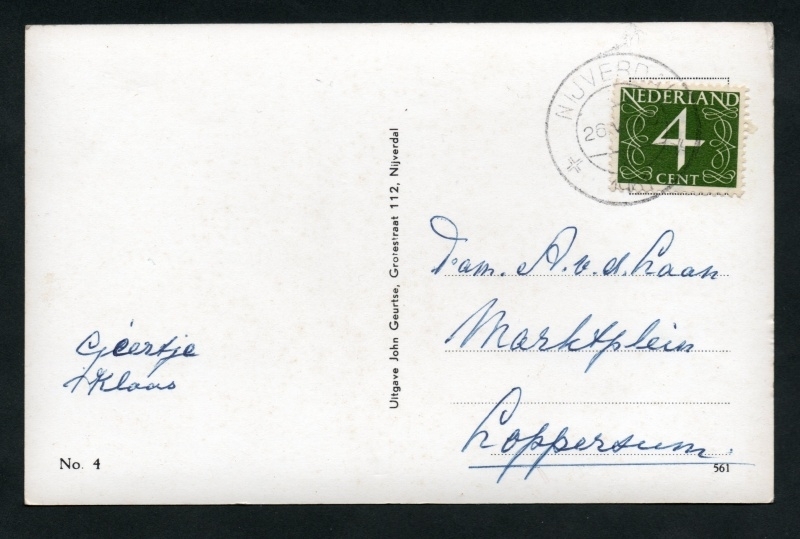 NIJVERD
26
NEDERLAND
4
CENT
Uitgave John Geurtse, Grotestraat 112, Nijverdal
Fam. A. v. d. Laan
Marktplein
Loppersum.
Geertje
+ Klaas
No. 4
561